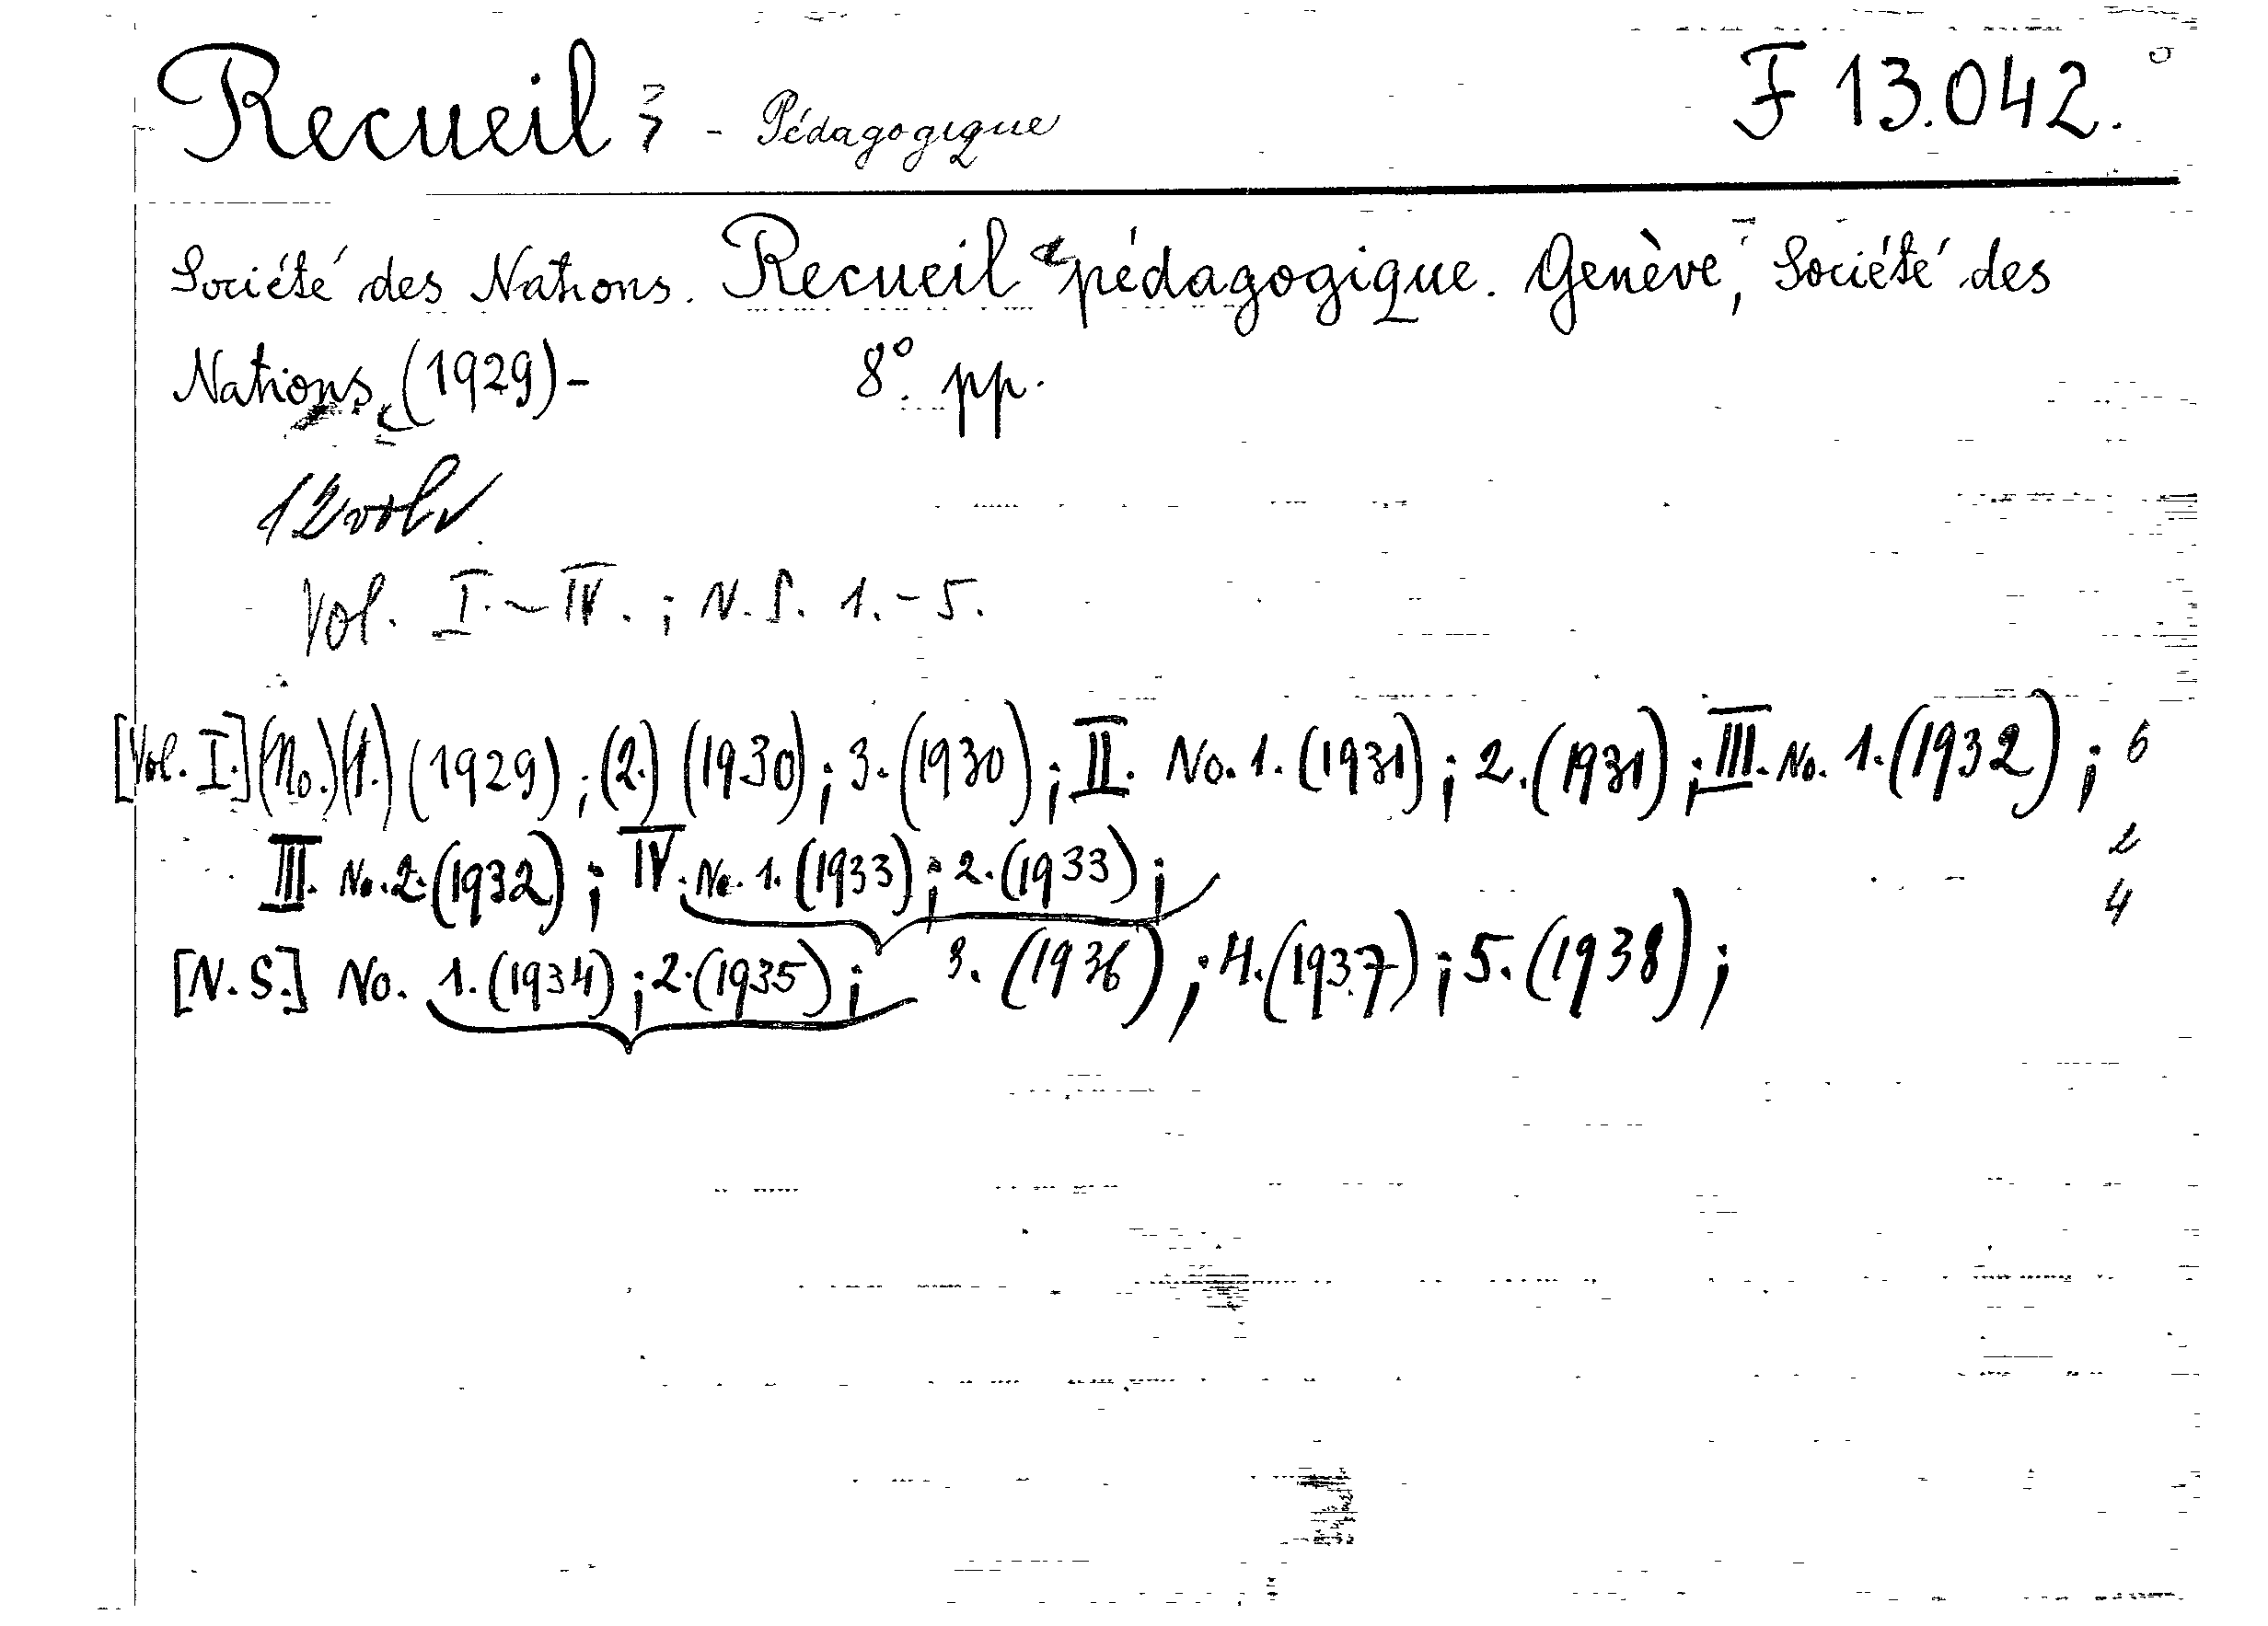 Recueil ; - Pédagogique F 13.042.
Société des Nations. Recueil pédagogique. Genève, Société des
Nations, (1929)- 8°. pp.
12 vol.
Vol. I.-IV. ; N.S. 1.-5.
[Vol. I.] (No.) (1.) (1929) ; (2.) (1930) ; 3. (1930) ; II. No. 1. (1931) ; 2. (1931) ; III. No. 1. (1932) ; 6
2
III. No. 2. (1932) ; IV. No. 1. (1933) ; 2. (1933) ; 4
[N.S.] No. 1. (1934) ; 2. (1935) ; 3. (1936) ; 4. (1937) ; 5. (1938) ;